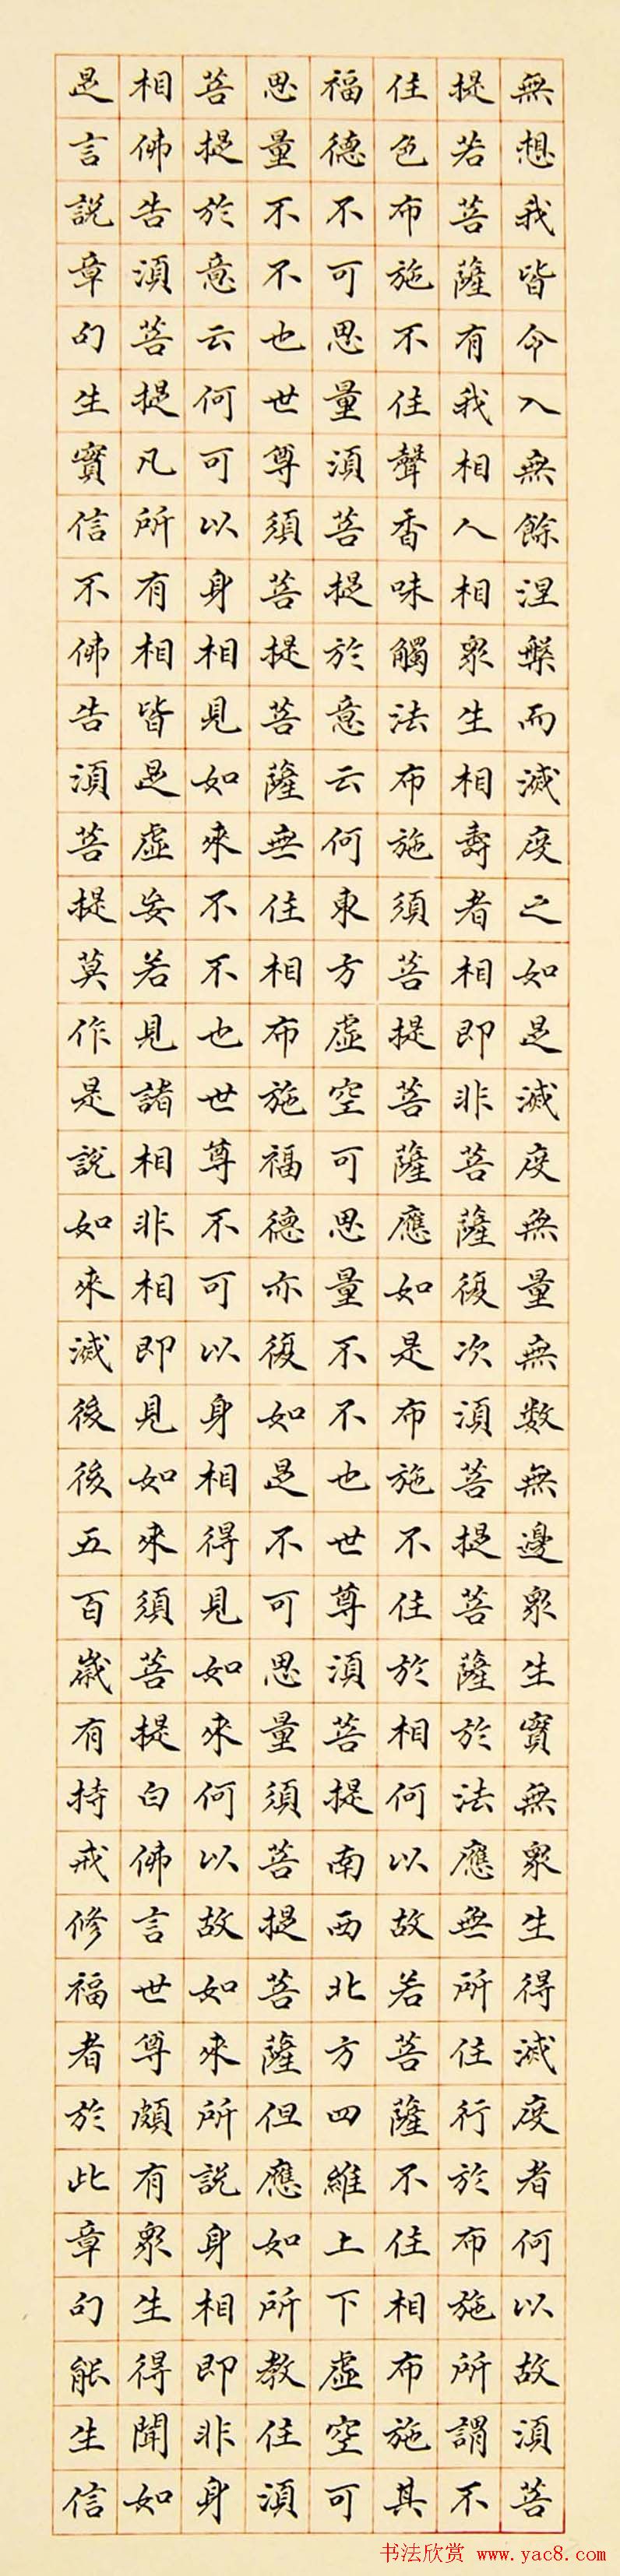 無想我皆令入無餘涅槃而滅度之如是滅度無量無數無邊眾生實無眾生得滅度者何以故須菩
提若菩薩有我相人相眾生相壽者相即非菩薩復次須菩提菩薩於法應無所住行於布施所謂不
住色布施不住聲香味觸法布施須菩提菩薩應如是布施不住於相何以故若菩薩不住相布施其
福德不可思量須菩提於意云何東方虛空可思量不不也世尊須菩提南西北方四維上下虛空可
思量不不也世尊須菩提菩薩無住相布施福德亦復如是不可思量須菩提菩薩但應如所教住須
菩提於意云何可以身相見如來不不也世尊不可以身相得見如來何以故如來所說身相即非身
相佛告須菩提凡所有相皆是虛妄若見諸相非相即見如來須菩提白佛言世尊頗有眾生得聞如
是言說章句生實信不佛告須菩提莫作是說如來滅後後五百歲有持戒修福者於此章句能生信
书法欣赏 www.yac8.com